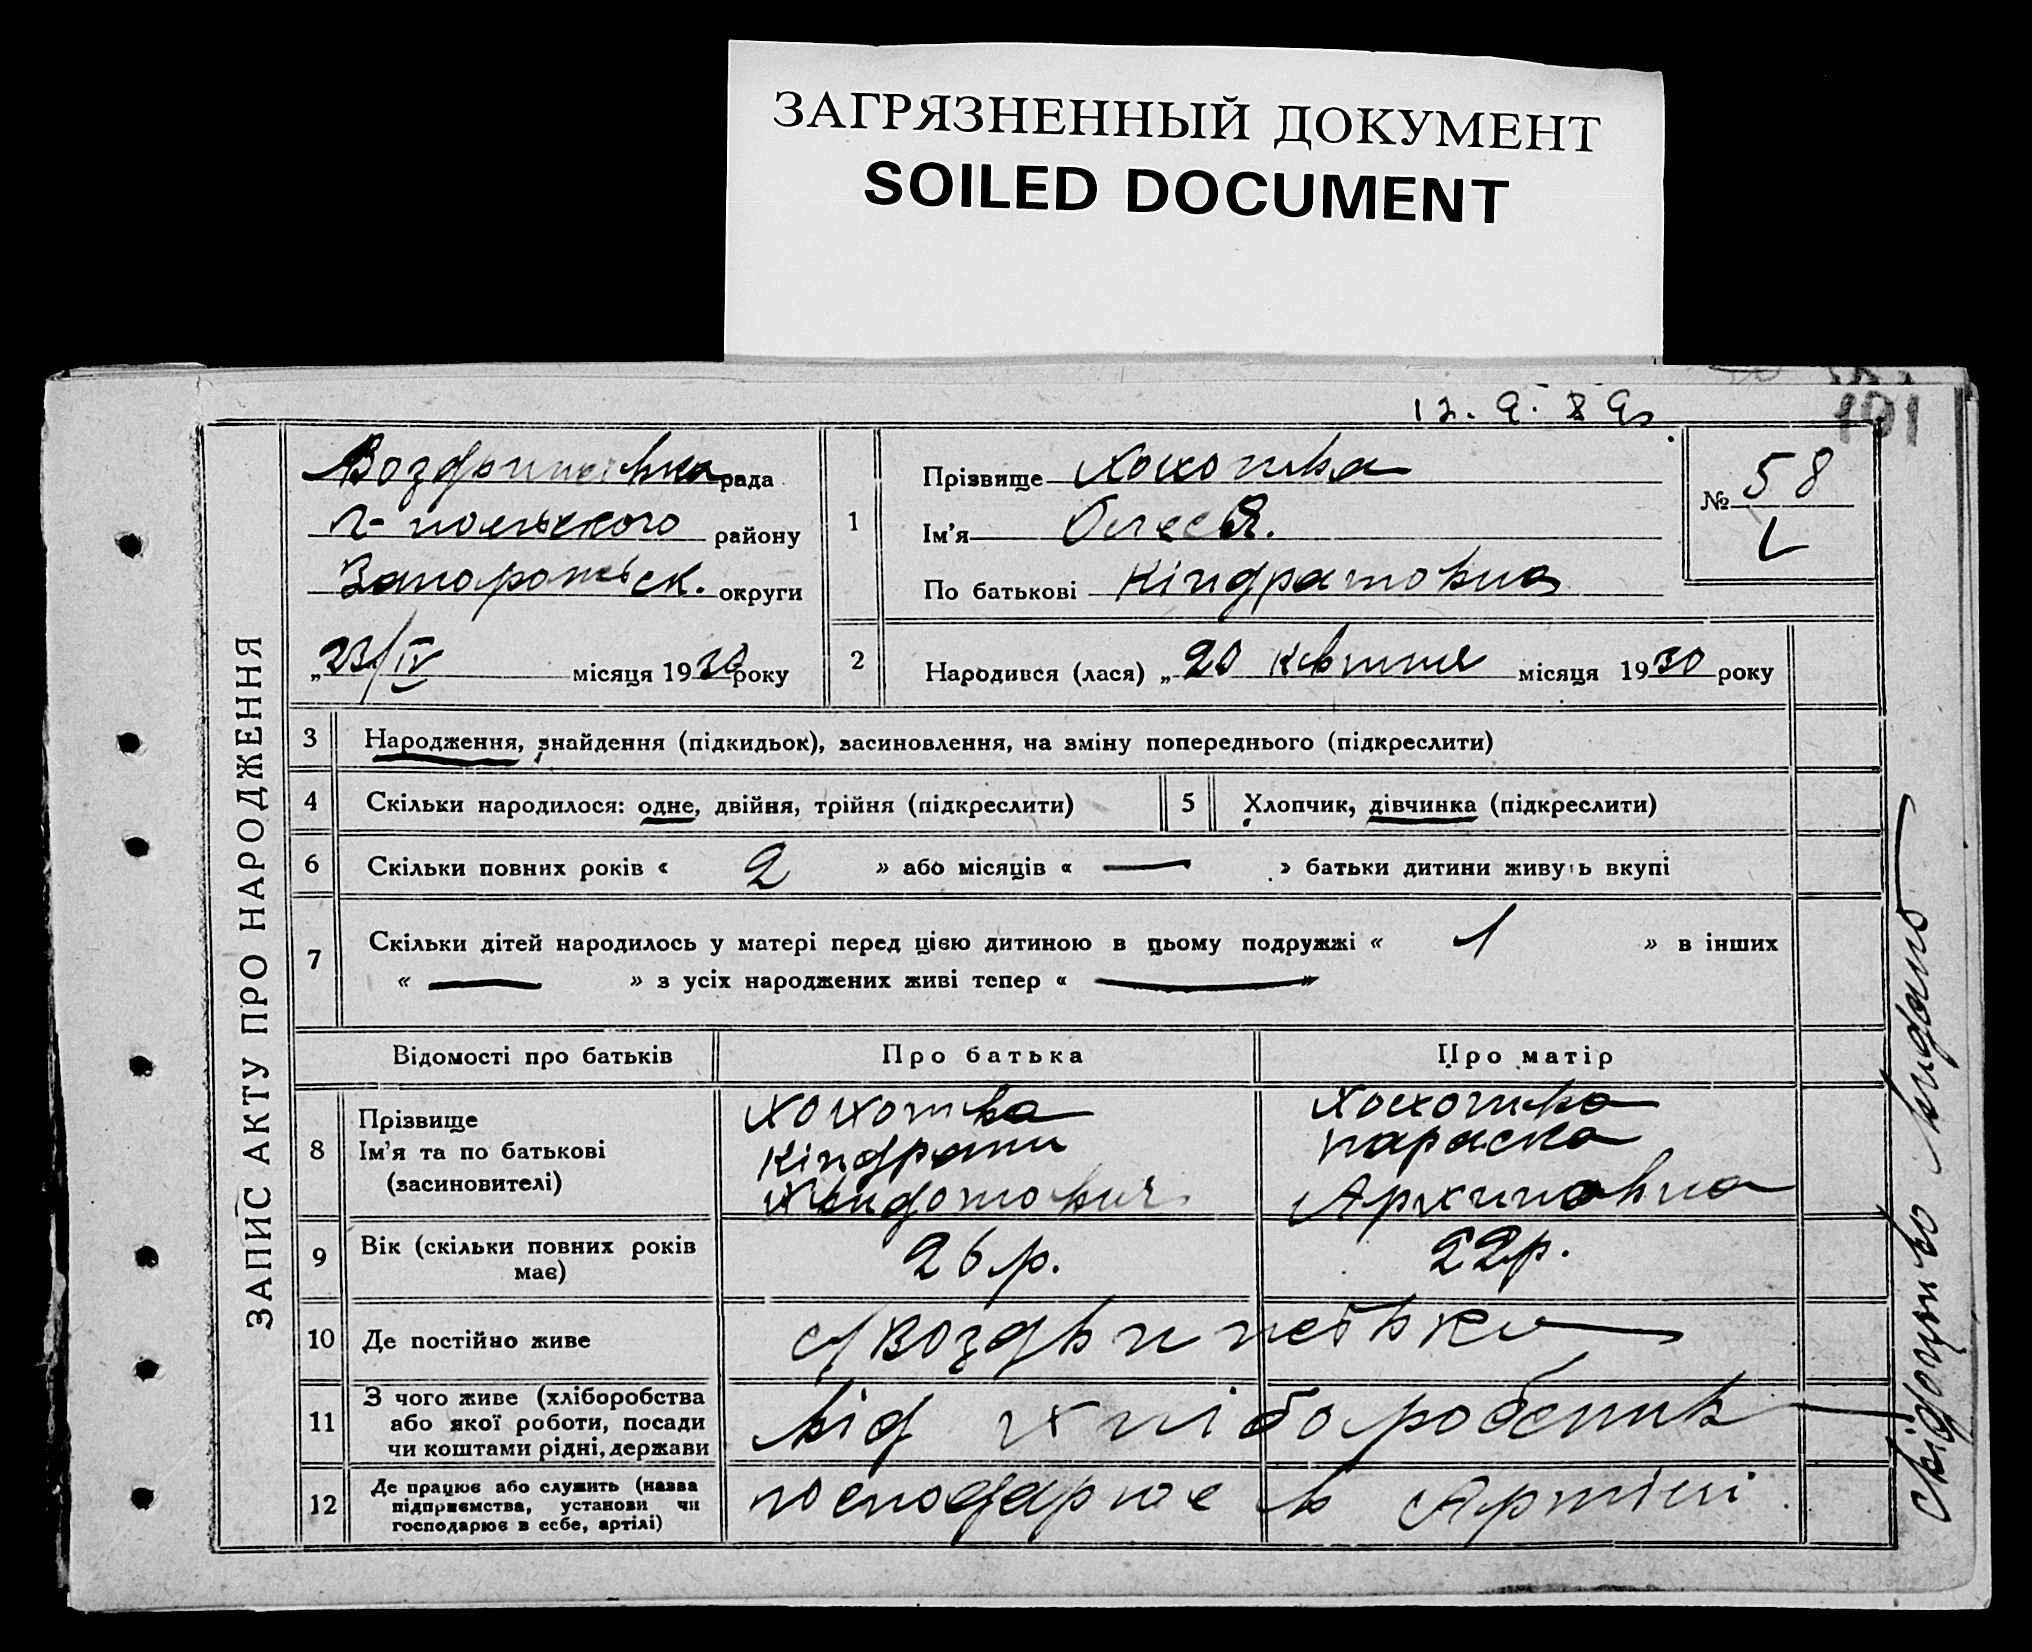 ЗАГРЯЗНЕННЫЙ ДОКУМЕНТ
SOILED DOCUMENT
12. 9. 89
101
ЗАПИС АКТУ ПРО НАРОДЖЕННЯ
рада
району
Запорожьск. округи
„23/IV місяця 1930 року
1
Прізвище Хохотва
Ім'я Олеся.
По батькові Кіндратовна
№ 58
2 Народився (лася) „20 квітня місяця 1930 року
3 Народження, знайдення (підкидьок), засиновлення, на зміну попереднього (підкреслити)
4 Скільки народилося: одне, двійня, трійня (підкреслити) 5 Хлопчик, дівчинка (підкреслити)
6 Скільки повних років « 2 » або місяців « — » батьки дитини живуть вкупі
7 Скільки дітей народилось у матері перед цією дитиною в цьому подружжі « 1 » в інших
« — » з усіх народжених живі тепер « — »
Відомості про батьків Про батька Про матір
8 Прізвище
Ім'я та по батькові
(засиновителі)
Хохотва
Кіндрат
Хохотва
Параска
Архиповна
9 Вік (скільки повних років
має)
26 р. 22 р.
10 Де постійно живе
11 З чого живе (хліборобства
або якої роботи, посади
чи коштами рідні, держави
від хліборобства
12 Де працює або служить (назва
підприємства, установи чи
господарює в себе, артілі)
господарює в Артілі
свідоцтво видано